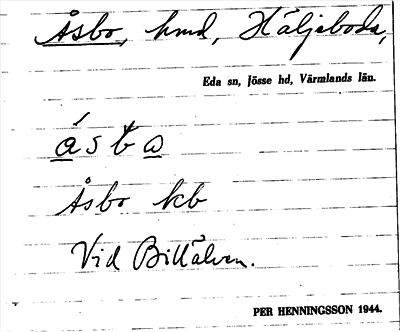 Åsbo, hmd, Häljeboda,
Eda sn, Jösse hd, Värmlands län.
Åsbo kb
Vid Billälven.
PER HENNINGSSON 1944.